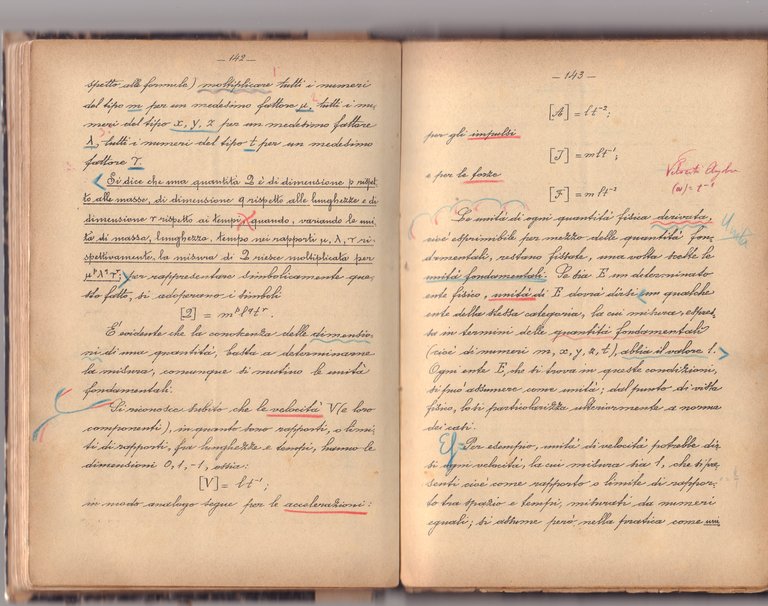 — 142 —
spetto alle formule) moltiplicare tutti i numeri
del tipo m per un medesimo fattore μ, tutti i nu-
meri del tipo x, y, z per un medesimo fattore
λ, tutti i numeri del tipo t per un medesimo
fattore τ.
Si dice che una quantità Q è di dimensione p rispet-
to alle masse, di dimensione q rispetto alle lunghezze e di
dimensione r rispetto ai tempi, quando, variando le uni-
tà di massa, lunghezza, tempo nei rapporti μ, λ, τ ri-
spettivamente, la misura di Q riesce moltiplicata per
μᵖ λ^q τʳ; per rappresentare simbolicamente que-
sto fatto, si adoperano i simboli
[Q] = mᵖ l^q tʳ.
È evidente che la conoscenza delle dimensio-
ni di una quantità, basta a determinarne
la misura, comunque si mutino le unità
fondamentali.
Si riconosce subito che le velocità V (e loro
componenti), in quanto sono rapporti, o limi-
ti di rapporti, fra lunghezze e tempi, hanno le
dimensioni 0, 1, -1, ossia:
[V] = l t⁻¹;
in modo analogo segue per le accelerazioni:
— 143 —
[A] = l t⁻²;
per gli impulsi
[J] = m l t⁻¹;
e per le forze
[F] = m l t⁻²
Velocità Angolare
(ω) = t⁻¹
Le unità di ogni quantità fisica derivata,
Unità
cioè esprimibile per mezzo delle quantità fon-
damentali, restano fissate, una volta scelte le
unità fondamentali. Se sia E un determinato
ente fisico, unità di E dovrà dirsi un qualche
ente della stessa categoria, la cui misura, espres-
sa in termini delle quantità fondamentali
(cioè di numeri m, x, y, z, t), abbia il valore 1.
Ogni ente E, che si trova in queste condizioni,
si può assumere come unità; dal punto di vista
fisico, lo si particolarizza ulteriormente a norma
dei casi.
Es= Per esempio, unità di velocità potrebbe dir-
si ogni velocità, la cui misura sia 1, che si pre-
senti cioè come rapporto o limite di rappor-
to tra spazio e tempi, misurati da numeri
eguali; si assume però nella pratica come uni-